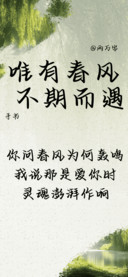 @两万零
唯有春风
不期而遇
手书
你问春风为何轰鸣
我说那是爱你时
灵魂澎湃作响